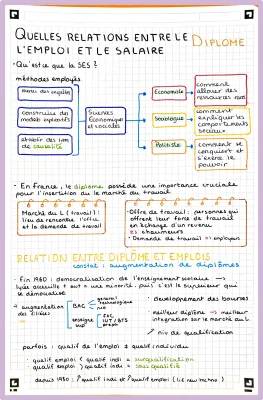 QUELLES RELATIONS ENTRE LE DIPLOME
L'EMPLOI ET LE SALAIRE
• Qu'est que la SES ?
méthodes employés
mener des enquêtes
construire des
modèles explicatifs
établir des liens
de causalité
Sciences
Economiques
et sociales
Economie
Sociologie
Politiste
comment
allouer des
ressources rares
comment
expliquer les
comportements
sociaux
comment se
conquiert et
s'exerce le
pouvoir
- En france, le diplome possède une importance cruciale
pour l'insertion du le marché du travail.
Marché du L (travail) :
lieu de rencontre l'offre
et la demande de travail
• Offre de travail : personnes qui
offrent leur force de travail
en échange d'un revenu
⇒ chomeurs
• Demande de travail ⇒ employeurs
RELATION ENTRE DIPLÔME ET EMPLOIS
constat : augmentation de diplômes
- Fin 1980 : démocratisation de l'enseignement secondaire →
lycée accueille tout une minorité. puis c'est le supérieur qui
se démocratise
→ augmentation
des filières
BAC
général
technologique
pro
enseigne
sup
fac
IUT / BTS
prépa
• developpement des bourses
• meilleur diplôme → meilleur
integration sur marché du L
↗ niv de qualification
parfois : qualif de l'emploi ≠ qualif individu
- qualif emploi < qualif indi = surqualification
- qualif emploi > qualif indi = sous qualifié
depuis 1980 : ↑ qualif indi et ↑ qualif emploi